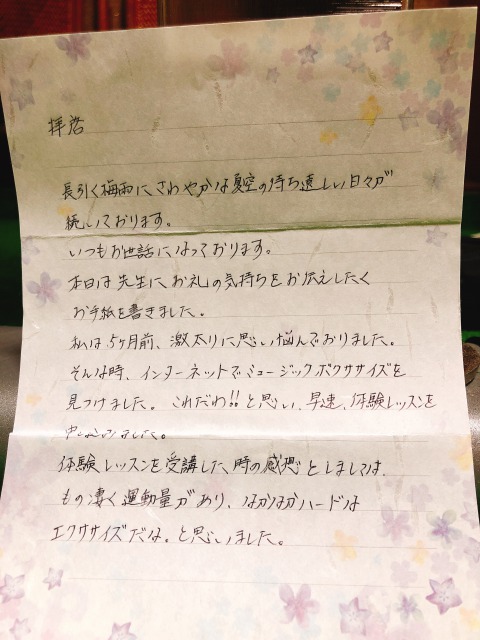 拝啓
長引く梅雨にさわやかな夏空の待ち遠しい日々が
続いております。
いつもお世話になっております。
本日は先生にお礼の気持ちをお伝えしたく
お手紙を書きました。
私は5ヶ月前、激太りに思い悩んでおりました。
そんな時、インターネットでミュージックボクササイズを
見つけました。これだわ!!と思い、早速、体験レッスンを
申し込みました。
体験レッスンを受講した時の感想としましては、
もの凄く運動量があり、なかなかハードな
エクササイズだな。と思いました。